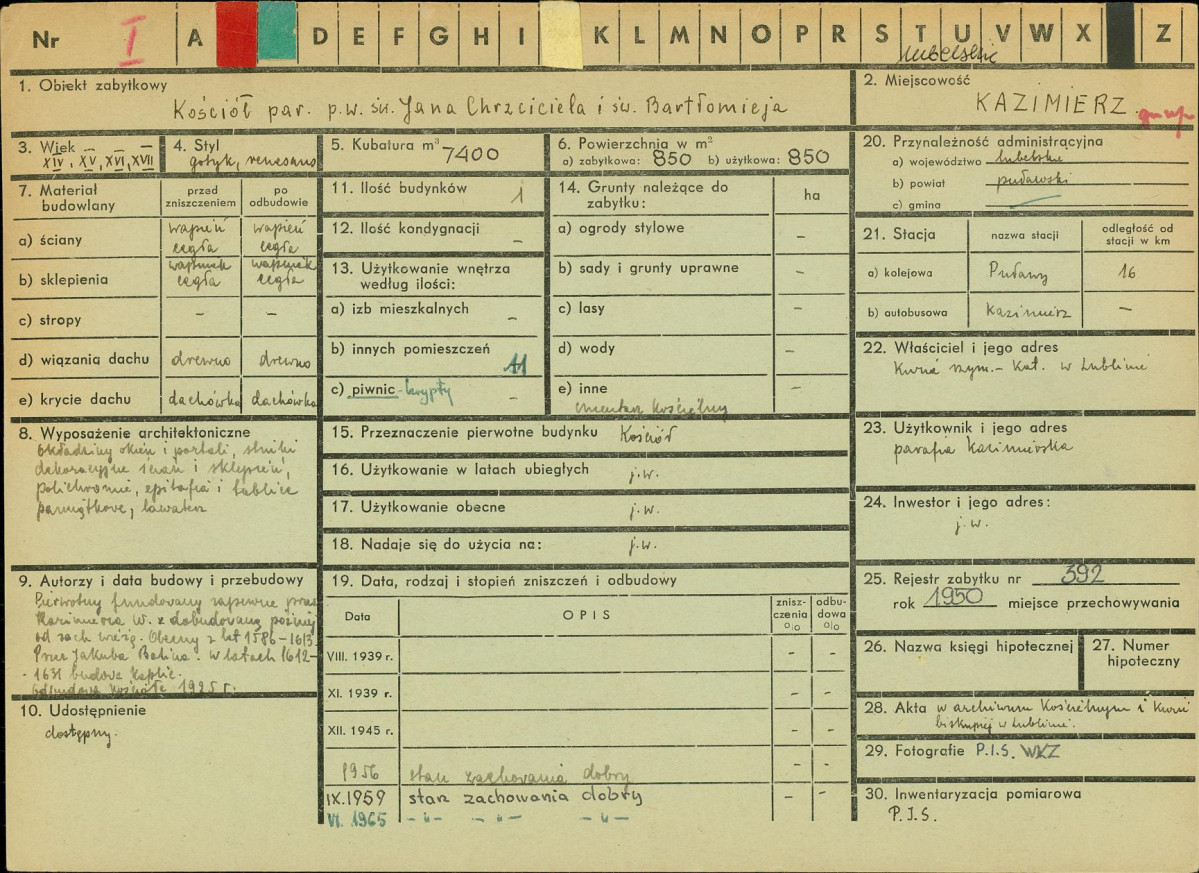 Nr I A D E F G H I K L M N O P R S T U V W X Z
lubelskie
1. Obiekt zabytkowy
Kościół par. p.w. św. Jana Chrzciciela i św. Bartłomieja
2. Miejscowość
KAZIMIERZ
3. Wiek
XIV, XV, XVI, XVII
4. Styl
gotyk, renesans
5. Kubatura m³ 7400
6. Powierzchnia w m²
a) zabytkowa: 850 b) użytkowa: 850
20. Przynależność administracyjna
a) województwo lubelskie
b) powiat puławski
c) gmina
7. Materiał budowlany
przed zniszczeniem
po odbudowie
a) ściany
wapień cegła
wapień cegła
b) sklepienia
cegła
cegła
c) stropy – –
d) wiązania dachu drewno drewno
e) krycie dachu dachówka dachówka
11. Ilość budynków 1
12. Ilość kondygnacji –
13. Użytkowanie wnętrza
według ilości:
a) izb mieszkalnych –
b) innych pomieszczeń 11
c) piwnic - krypty –
14. Grunty należące do
zabytku:
ha
a) ogrody stylowe –
b) sady i grunty uprawne –
c) lasy –
d) wody –
e) inne –
cmentarz kościelny
21. Stacja
nazwa stacji
odległość od
stacji w km
a) kolejowa Puławy 16
b) autobusowa Kazimierz –
22. Właściciel i jego adres
Kuria rzym.- kat. w Lublinie
8. Wyposażenie architektoniczne
okładziny okien i portali, stiuki
dekoracyjne ścian i sklepień,
polichromie, epitafia i tablice
pamiątkowe, lawaterz
15. Przeznaczenie pierwotne budynku Kościół
16. Użytkowanie w latach ubiegłych j.w.
17. Użytkowanie obecne j.w.
18. Nadaje się do użycia na: j.w.
23. Użytkownik i jego adres
parafia Kazimierska
24. Inwestor i jego adres:
j.w.
9. Autorzy i data budowy i przebudowy
Pierwotny fundowany zapewne przez
Kazimierza W. z dobudowaną później
od zach wieżą. Obecny z lat 1586-1613
Przez Jakuba Balina. W latach 1612-
-1631 budowa Kaplic.
odbudowa kościoła 1925 r.
10. Udostępnienie
dostępny.
19. Data, rodzaj i stopień zniszczeń i odbudowy
Data
OPIS
znisz-
czenia
o|o
odbu-
dowa
o|o
VIII. 1939 r. – –
XI. 1939 r. – –
XII. 1945 r. – –
1956 stan zachowania dobry – –
IX.1959 stan zachowania dobry – –
VI. 1965 – „ – – „ – – „ –
25. Rejestr zabytku nr 392
rok 1950 miejsce przechowywania
26. Nazwa księgi hipotecznej
27. Numer
hipoteczny
28. Akta w archiwum Kościelnym i Kurii
biskupiej w Lublinie.
29. Fotografie P.I.S. WKZ
30. Inwentaryzacja pomiarowa
P.I.S.